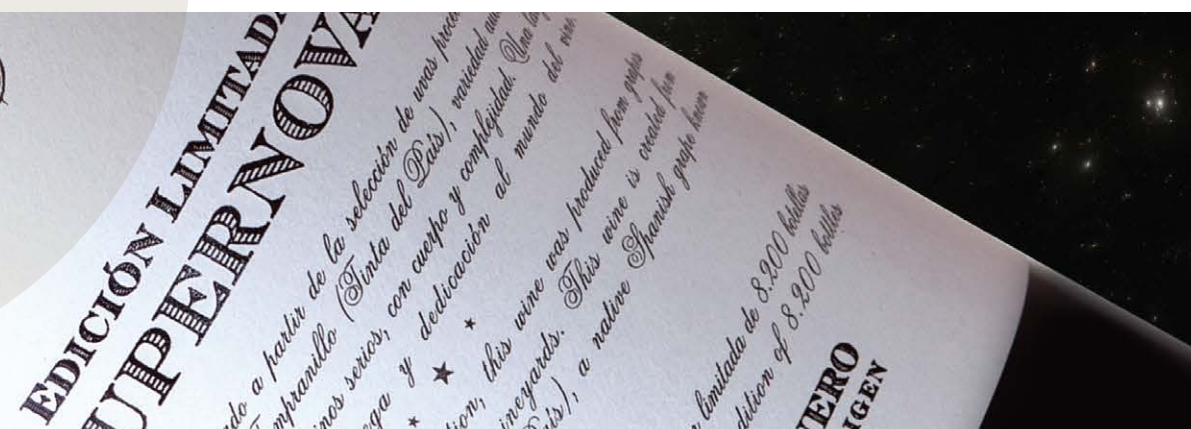 EDICIÓN LIMITADA
UPERNOVA
ndo a partir de la selección de uvas proce
empranillo (Tinta del País), variedad au
inos serios, con cuerpo y complejidad. Una la
ega y dedicación al mundo del vino.
tion, this wine was produced from grapes
ineyards. This wine is created from
aís), a native Spanish grape known
n limitada de 8.200 botellas
dition of 8.200 bottles
ERO
IGEN